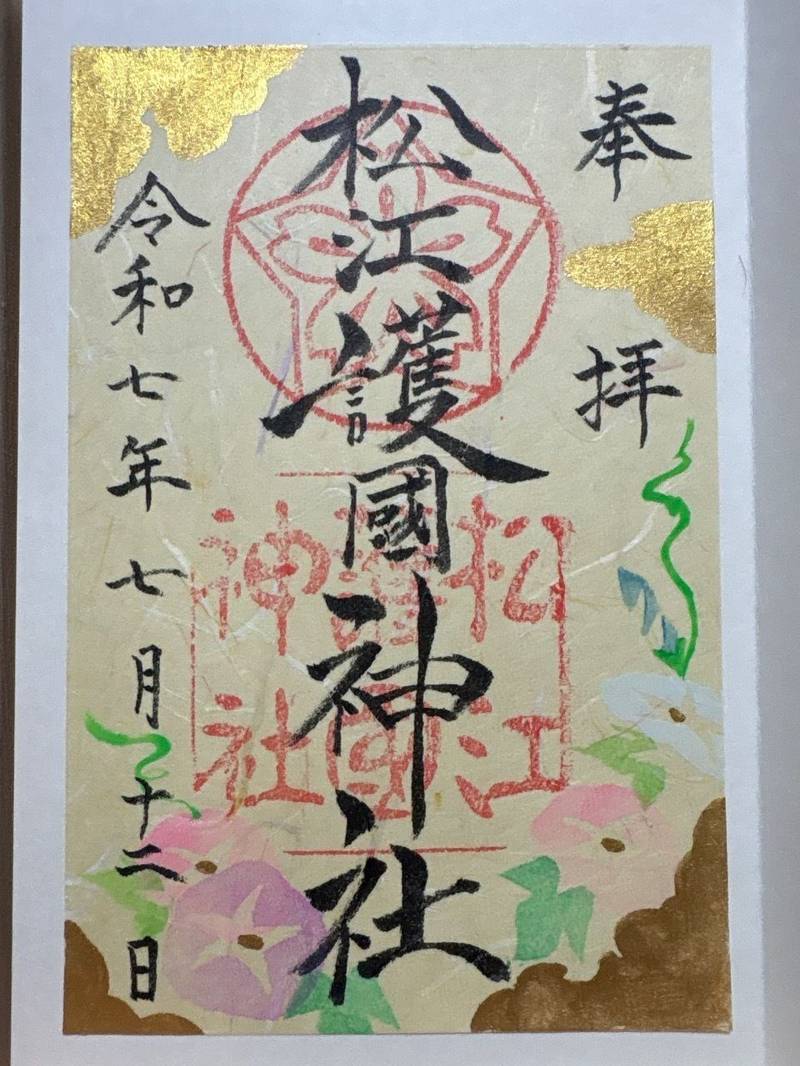 奉拝
松江護國神社
松江
護國
神社
令和七年七月十二日